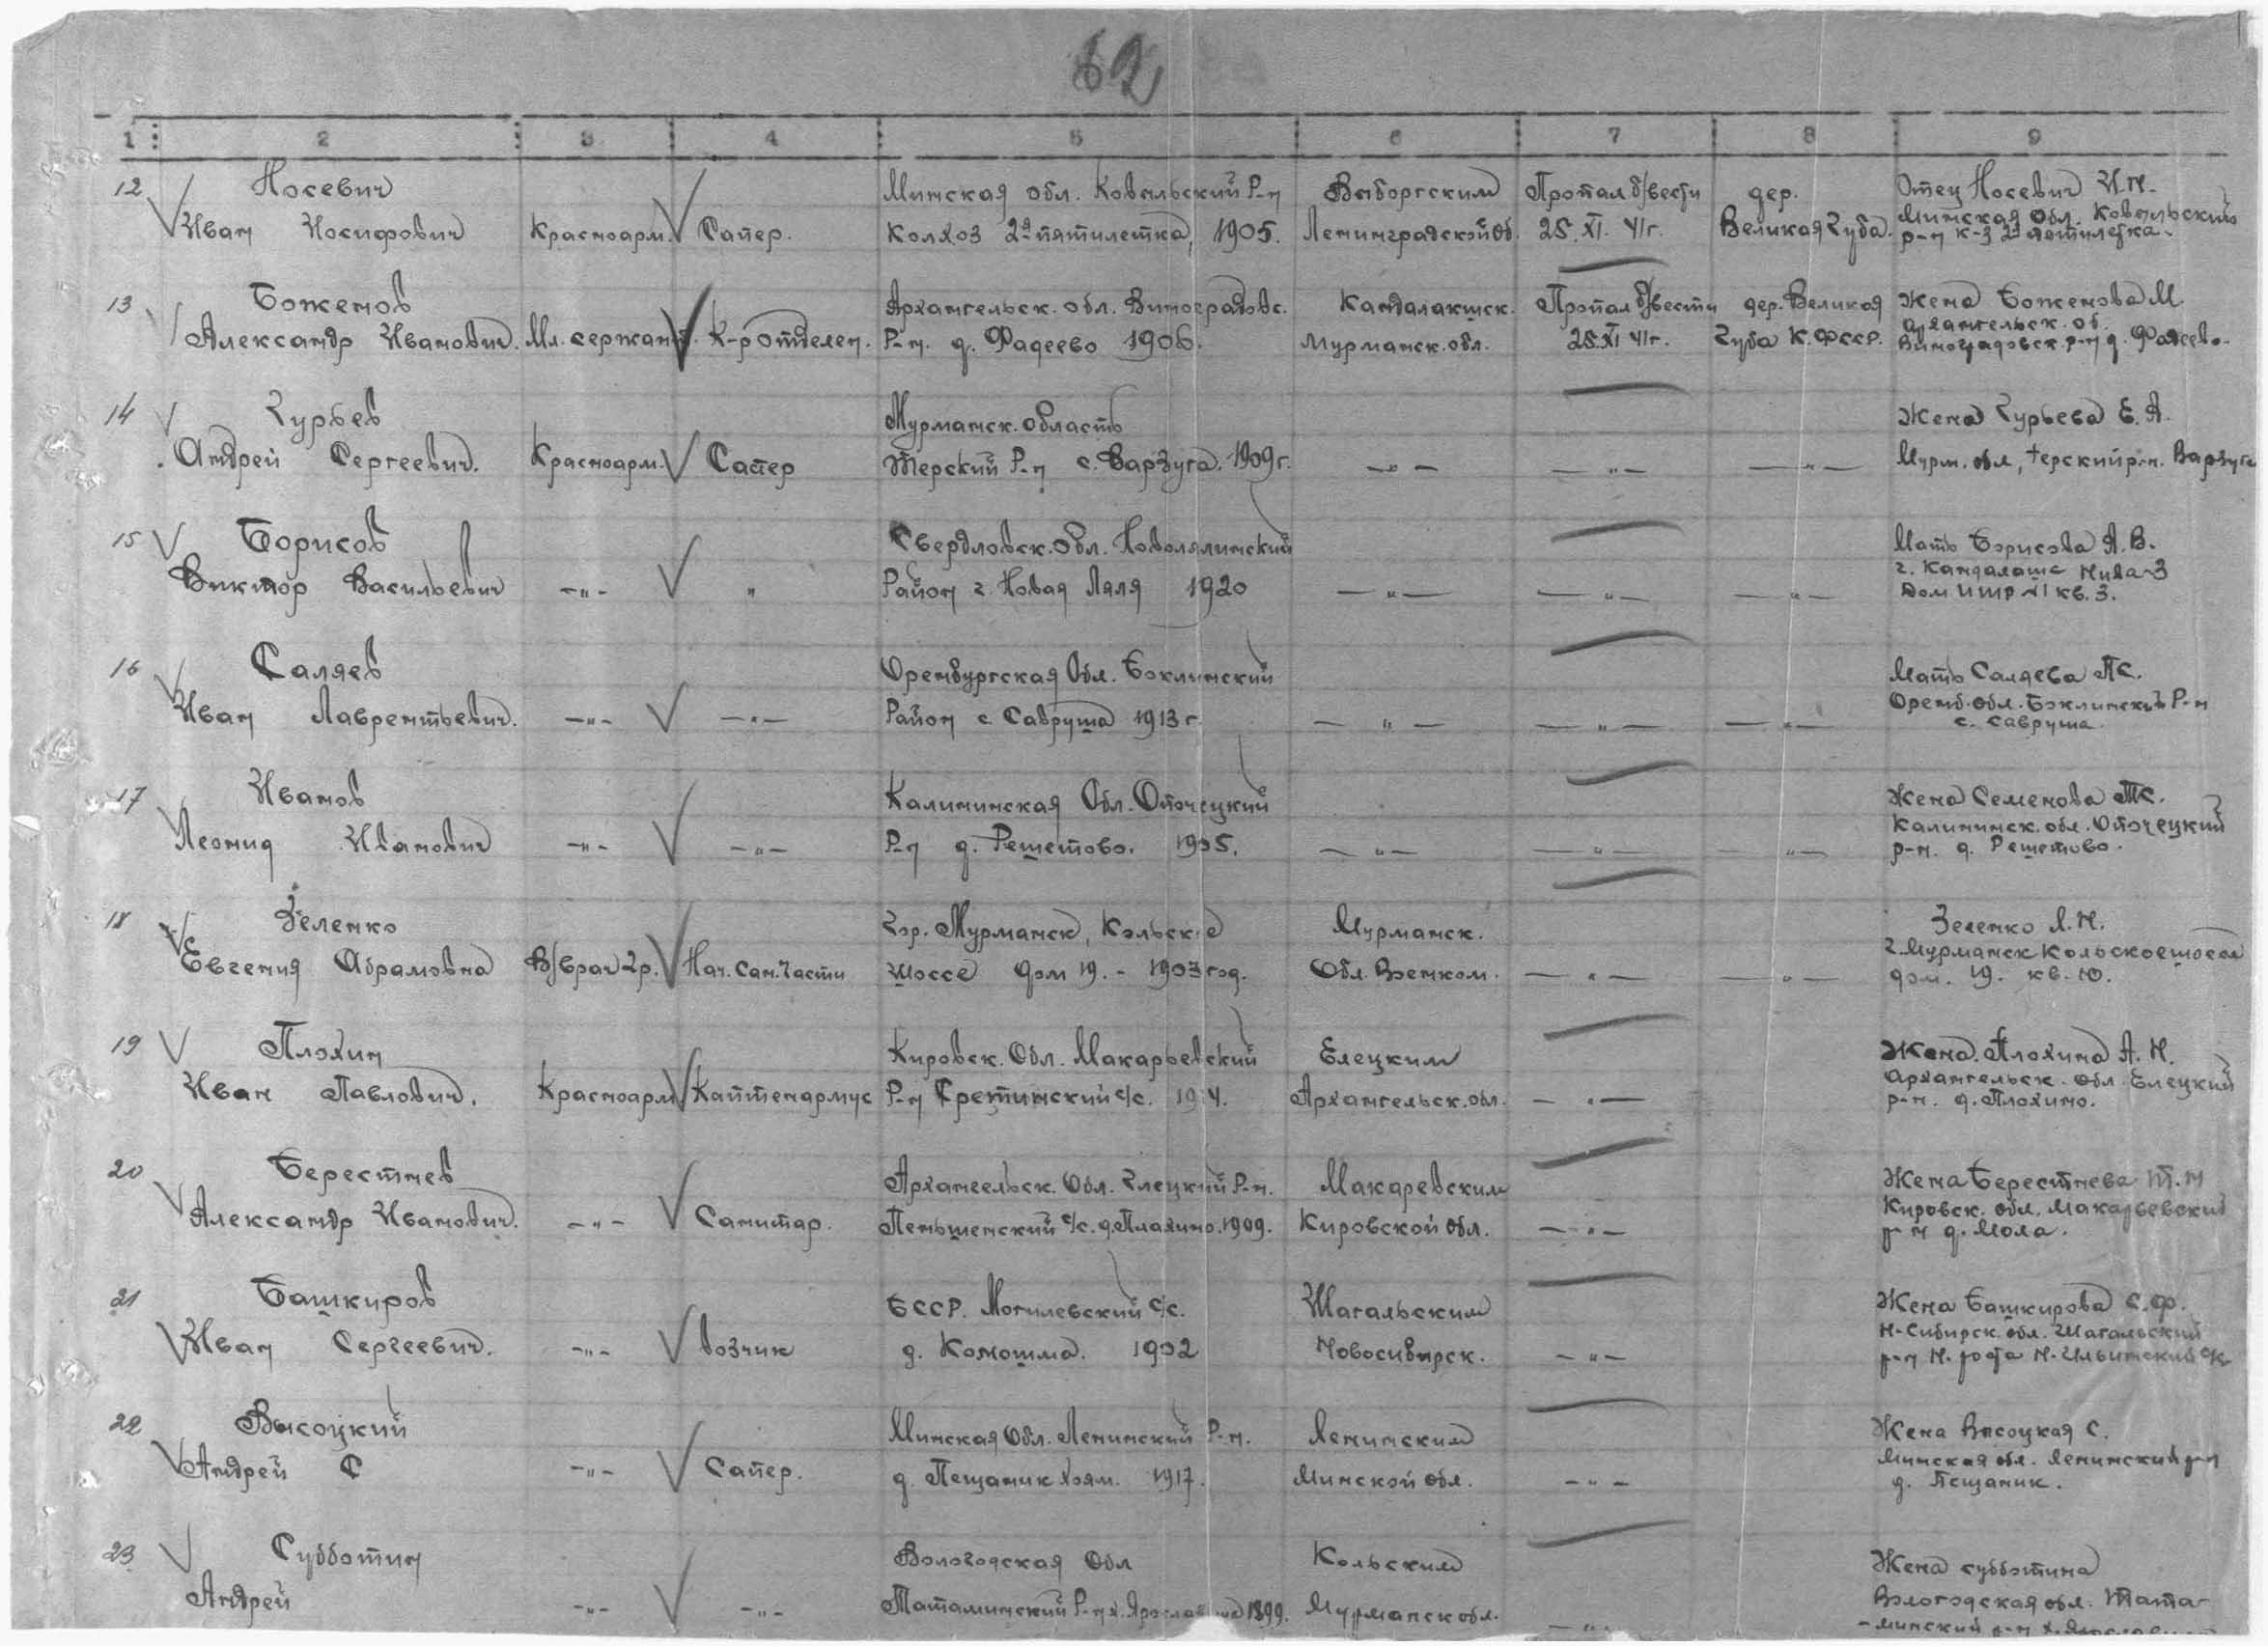 62
1 2 3 4 5 6 7 8 9
12 Носевич
Иван Иосифович
Красноарм.
Сапер.
Минская обл. Ковыльский Р-н
Колхоз 2я пятилетка, 1905.
Выборгским
Ленинградской Об.
Пропал б/вести
25. XI. 41г.
дер.
Великая Губа.
Отец Носевич И.Н.
Минская Обл. Ковыльский
р-н к-з 2я пятилетка.
13 Боженов
Александр Иванович.
Мл. сержант.
К-р отделен.
Архангельск. обл. Виноградовс.
Р-н. д. Фадеево 1906.
Кандалакшск.
Мурманск. обл.
Пропал б/вести
25. XI 41г.
дер. Великая
Губа К.ФССР.
Жена Боженова М
Архангельск. об.
Виноградовск. р-н д. Фадеево.
14 Гурьев
Андрей Сергеевич.
Красноарм.
Сапер
Мурманск. область
Терский Р-н с. Варзуга. 1909г.
— " —
— " —
— " —
Жена Гурьева Е.А.
Мурм. обл, терский р-н. Варзуга
15 Борисов
Виктор Васильевич
— " —
"
Свердловск. обл. Новолялинский
Район г. Новая Ляля 1920
— " —
— " —
— " —
Мать Борисова А.В.
г. Кандалакша Нива-3
Дом ИТР №1 кв. 3.
16 Саляев
Иван Лаврентьевич.
— " —
— " —
Оренбургская Обл. Боклинский
Район с. Савруша 1913г.
— " —
— " —
— " —
Мать Саляева ПС.
Оренб. обл. Боклинский Р-н
с. Савруша.
17 Иванов
Леонид Иванович
— " —
— " —
Калининская Обл. Опочецкий
Р-н д. Решетово. 1905.
— " —
— " —
— " —
Жена Семенова ТС.
Калининск. обл. Опочецкий
р-н. д. Решетово.
18 Зеленко
Евгения Абрамовна
В/врач 2р.
Нач. Сан. Части
Гор. Мурманск, Кольское
шоссе дом 19. - 1903 год.
Мурманск.
Обл. Военком.
— " —
— " —
Зеленко Л.Н.
г. Мурманск Кольское шоссе
дом. 19. кв. 10.
19 Плохин
Иван Павлович.
Красноарм
Каптенармус
Кировск. Обл. Макарьевский
Р-н Сретинский с/с.
Елецким
Архангельск. обл.
— " —
Жена Плохина А.Н.
Архангельск. обл. Елецкий
р-н. д. Плохино.
20 Берестнев
Александр Иванович.
— " —
Санитар.
Архангельск. Обл. Елецкий Р-н.
Пеньшенский с/с. д. Плахино. 1909.
Макаревским
Кировской обл.
— " —
Жена Берестнева
Кировск. обл. Макарьевский
р-н д. Мола.
21 Башкиров
Иван Сергеевич.
— " —
Возчик
БССР. Могилевский с/с.
д. Комошма. 1902
Шагальским
Новосибирск.
— " —
Жена Башкирова С.Ф.
Н-Сибирск. обл. Шагальский
р-н Н-Ильинский с/с
22 Высоцкий
Андрей С
— " —
Сапер.
Минская Обл. Ленинский Р-н.
д. Пещаник 1917.
Ленинским
Минской обл.
— " —
Жена Высоцкая С.
Минская обл. Ленинский р-н
д. Пещаник.
23 Субботин
Андрей
— " —
— " —
Вологодская Обл
Таталинский Р-н 1899.
Кольским
Мурманск обл.
— " —
Жена субботина
Вологодская обл. Тата-
-минский р-н